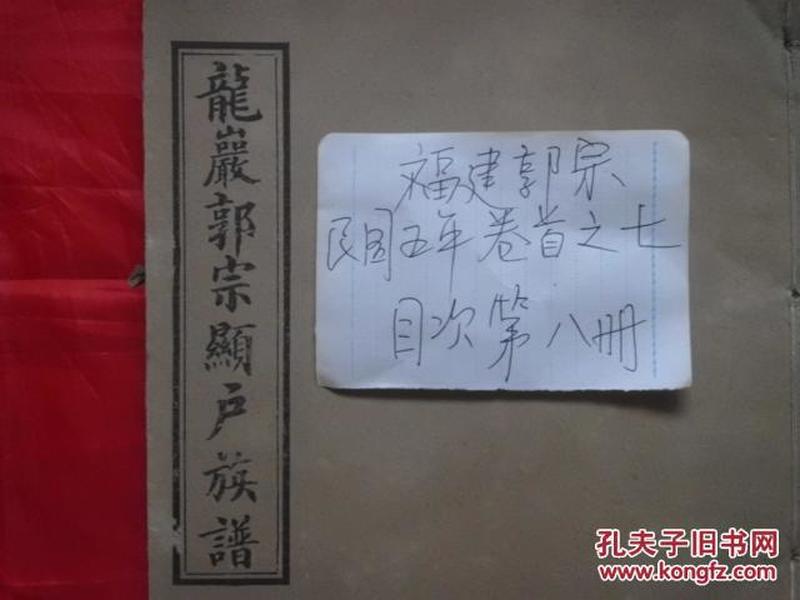 龍巖郭宗顯户族譜
福建郭宗
民国五年卷首之七
目次第八册
孔夫子旧书网
www.kongfz.com